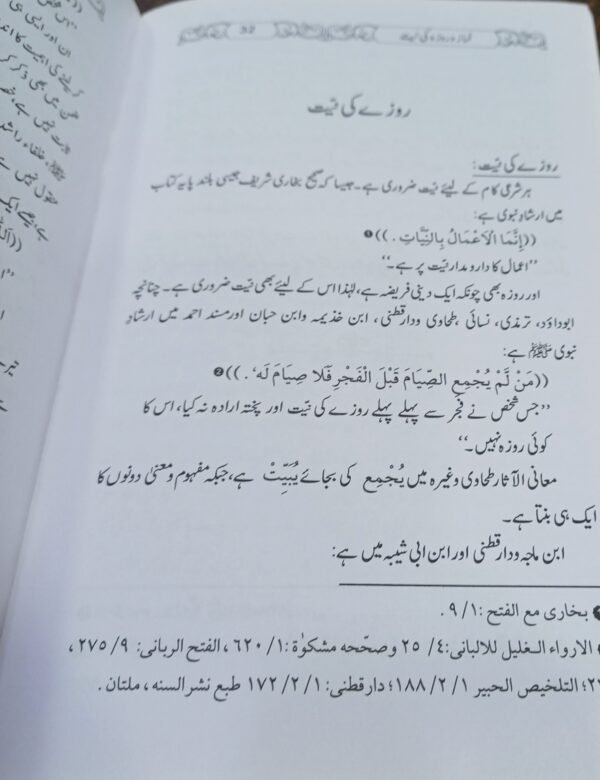 نماز و روزہ کی نیت 32
روزے کی نیت
روزے کی نیت:
ہر شرعی کام کے لیئے نیت ضروری ہے۔ جیسا کہ صحیح بخاری شریف جیسی بلند پایہ کتاب
میں ارشادِ نبوی ہے:
((إِنَّمَا الْاَعْمَالُ بِالنِّيَّاتِ .)) ❶
’’اعمال کا دارومدار نیت پر ہے۔‘‘
اور روزہ بھی چونکہ ایک دینی فریضہ ہے، لہٰذا اس کے لیئے بھی نیت ضروری ہے۔ چنانچہ
ابوداؤد، ترمذی، نسائی، طحاوی ودارقطنی، ابن خذیمہ وابن حبان اور مسند احمد میں ارشادِ
نبوی ﷺ ہے:
((مَنْ لَّمْ يُجْمِعِ الصِّيَامَ قَبْلَ الْفَجْرِ فَلَا صِيَامَ لَه‘ .)) ❷
’’جس شخص نے فجر سے پہلے پہلے روزے کی نیت اور پختہ ارادہ نہ کیا، اس کا
کوئی روزہ نہیں۔‘‘
معانی الآثار طحاوی وغیرہ میں يُجْمِعِ کی بجائے يُبَيِّتْ ہے، جبکہ مفہوم و معنیٰ دونوں کا
ایک ہی بنتا ہے۔
ابن ماجہ ودارقطنی اور ابن ابی شیبہ میں ہے:
❶ بخاری مع الفتح :۱/ ۹ .
الارواء الغلیل للالبانی:٤/ ٢٥ وصحّحه مشکوٰة :١/ ٦٢٠ ، الفتح الربانی: ٩/ ٢٧٥ ،
؛ التلخیص الحبیر ١/ ٢/ ١٨٨؛ دارقطنی: ١/ ٢/ ١٧٢ طبع نشر السنه ، ملتان .